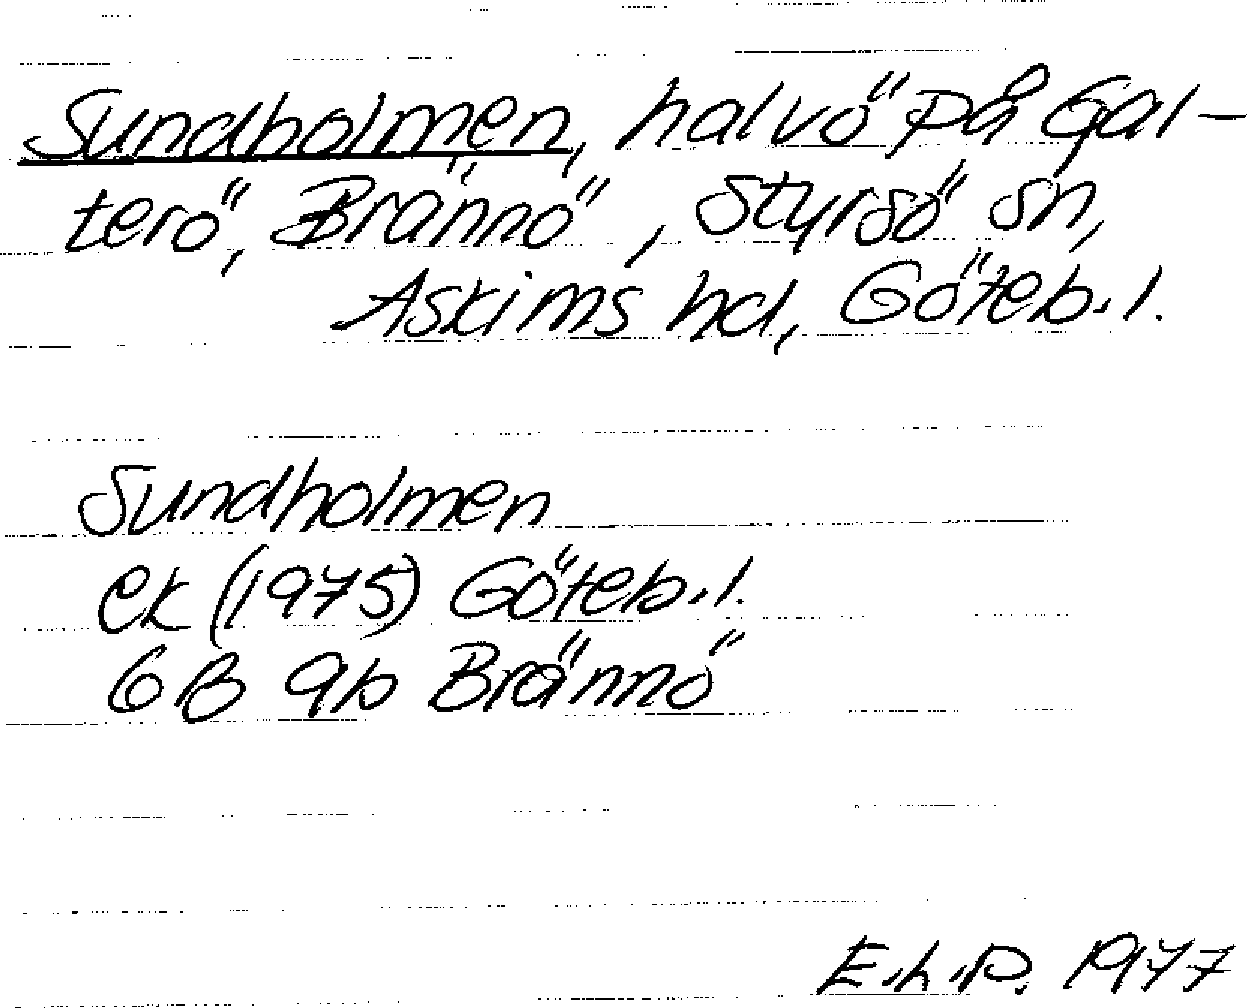 Sundholmen, halvö på Gal-
terö, Brännö, Styrsö sn,
Askims hd, Göteb.l.
Sundholmen
ek (1975) Göteb.l.
6B 9b Brännö
E.h.P. 1977